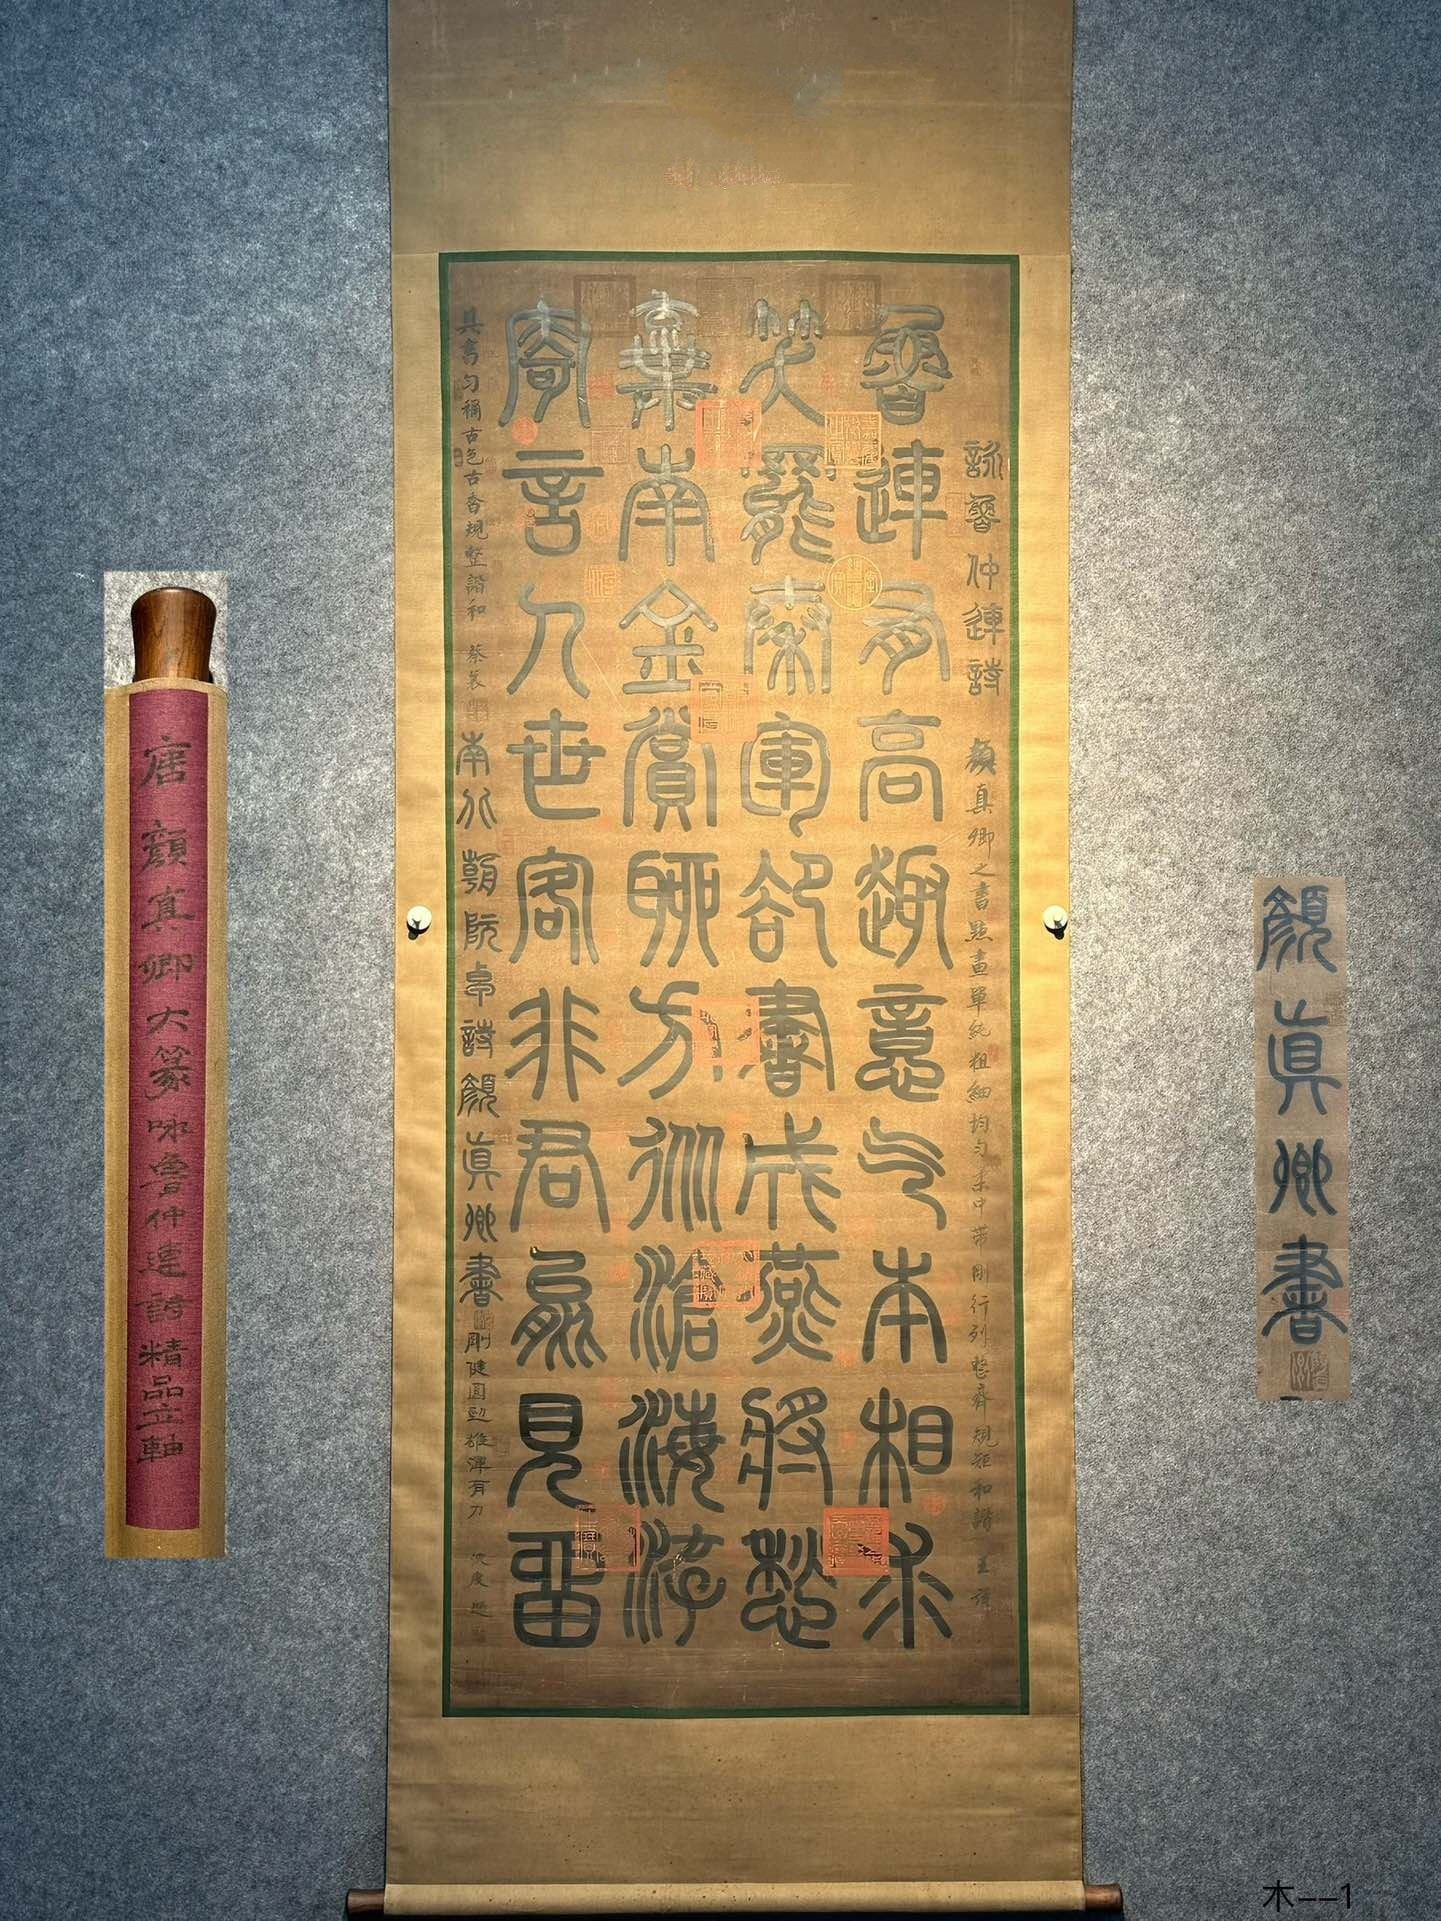 詠魯仲連詩 顏真卿之書點畫單純粗細均勻柔中帶剛行列整齊規矩和諧 王詵
魯連有高趣意气本相求
笑罷秦軍卻書成燕將愁
棄南金賞聊方從滄海游
寄言人世客非君見留
具書勻稱古色古香規整諧和 蔡襄
南北朝阮卓詩顏真卿書
剛健圓勁雄渾有力
唐 顏真卿大篆咏魯仲連詩精品立軸
顏真卿書
木--1